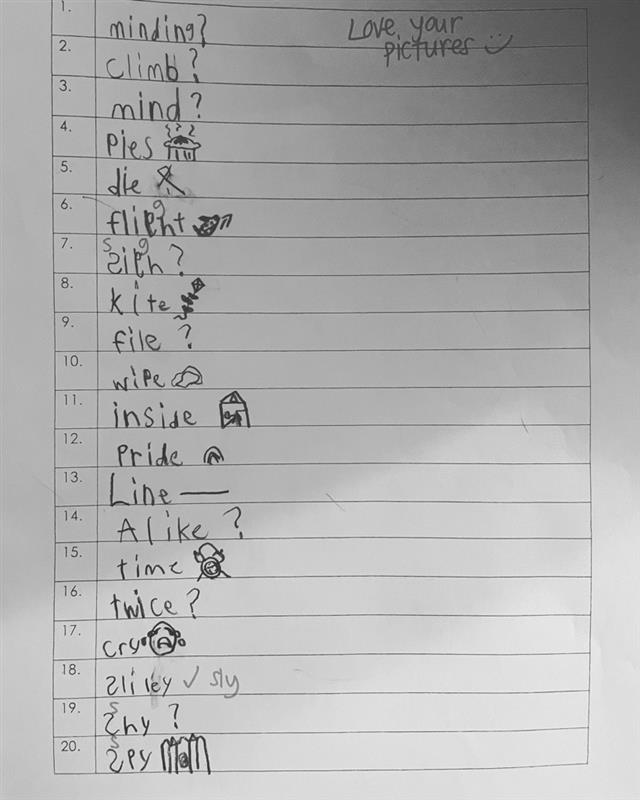 1. minding?
Love your
pictures
2. climb?
3. mind?
4. Pies
5. die
6. flight
7. Sigh?
8. kite
9. file ?
10. wipe
11. inside
12. Pride
13. Line
14. Alike ?
15. time
16. twice ?
17. cry
18. sly
19. Shy ?
20. Spy